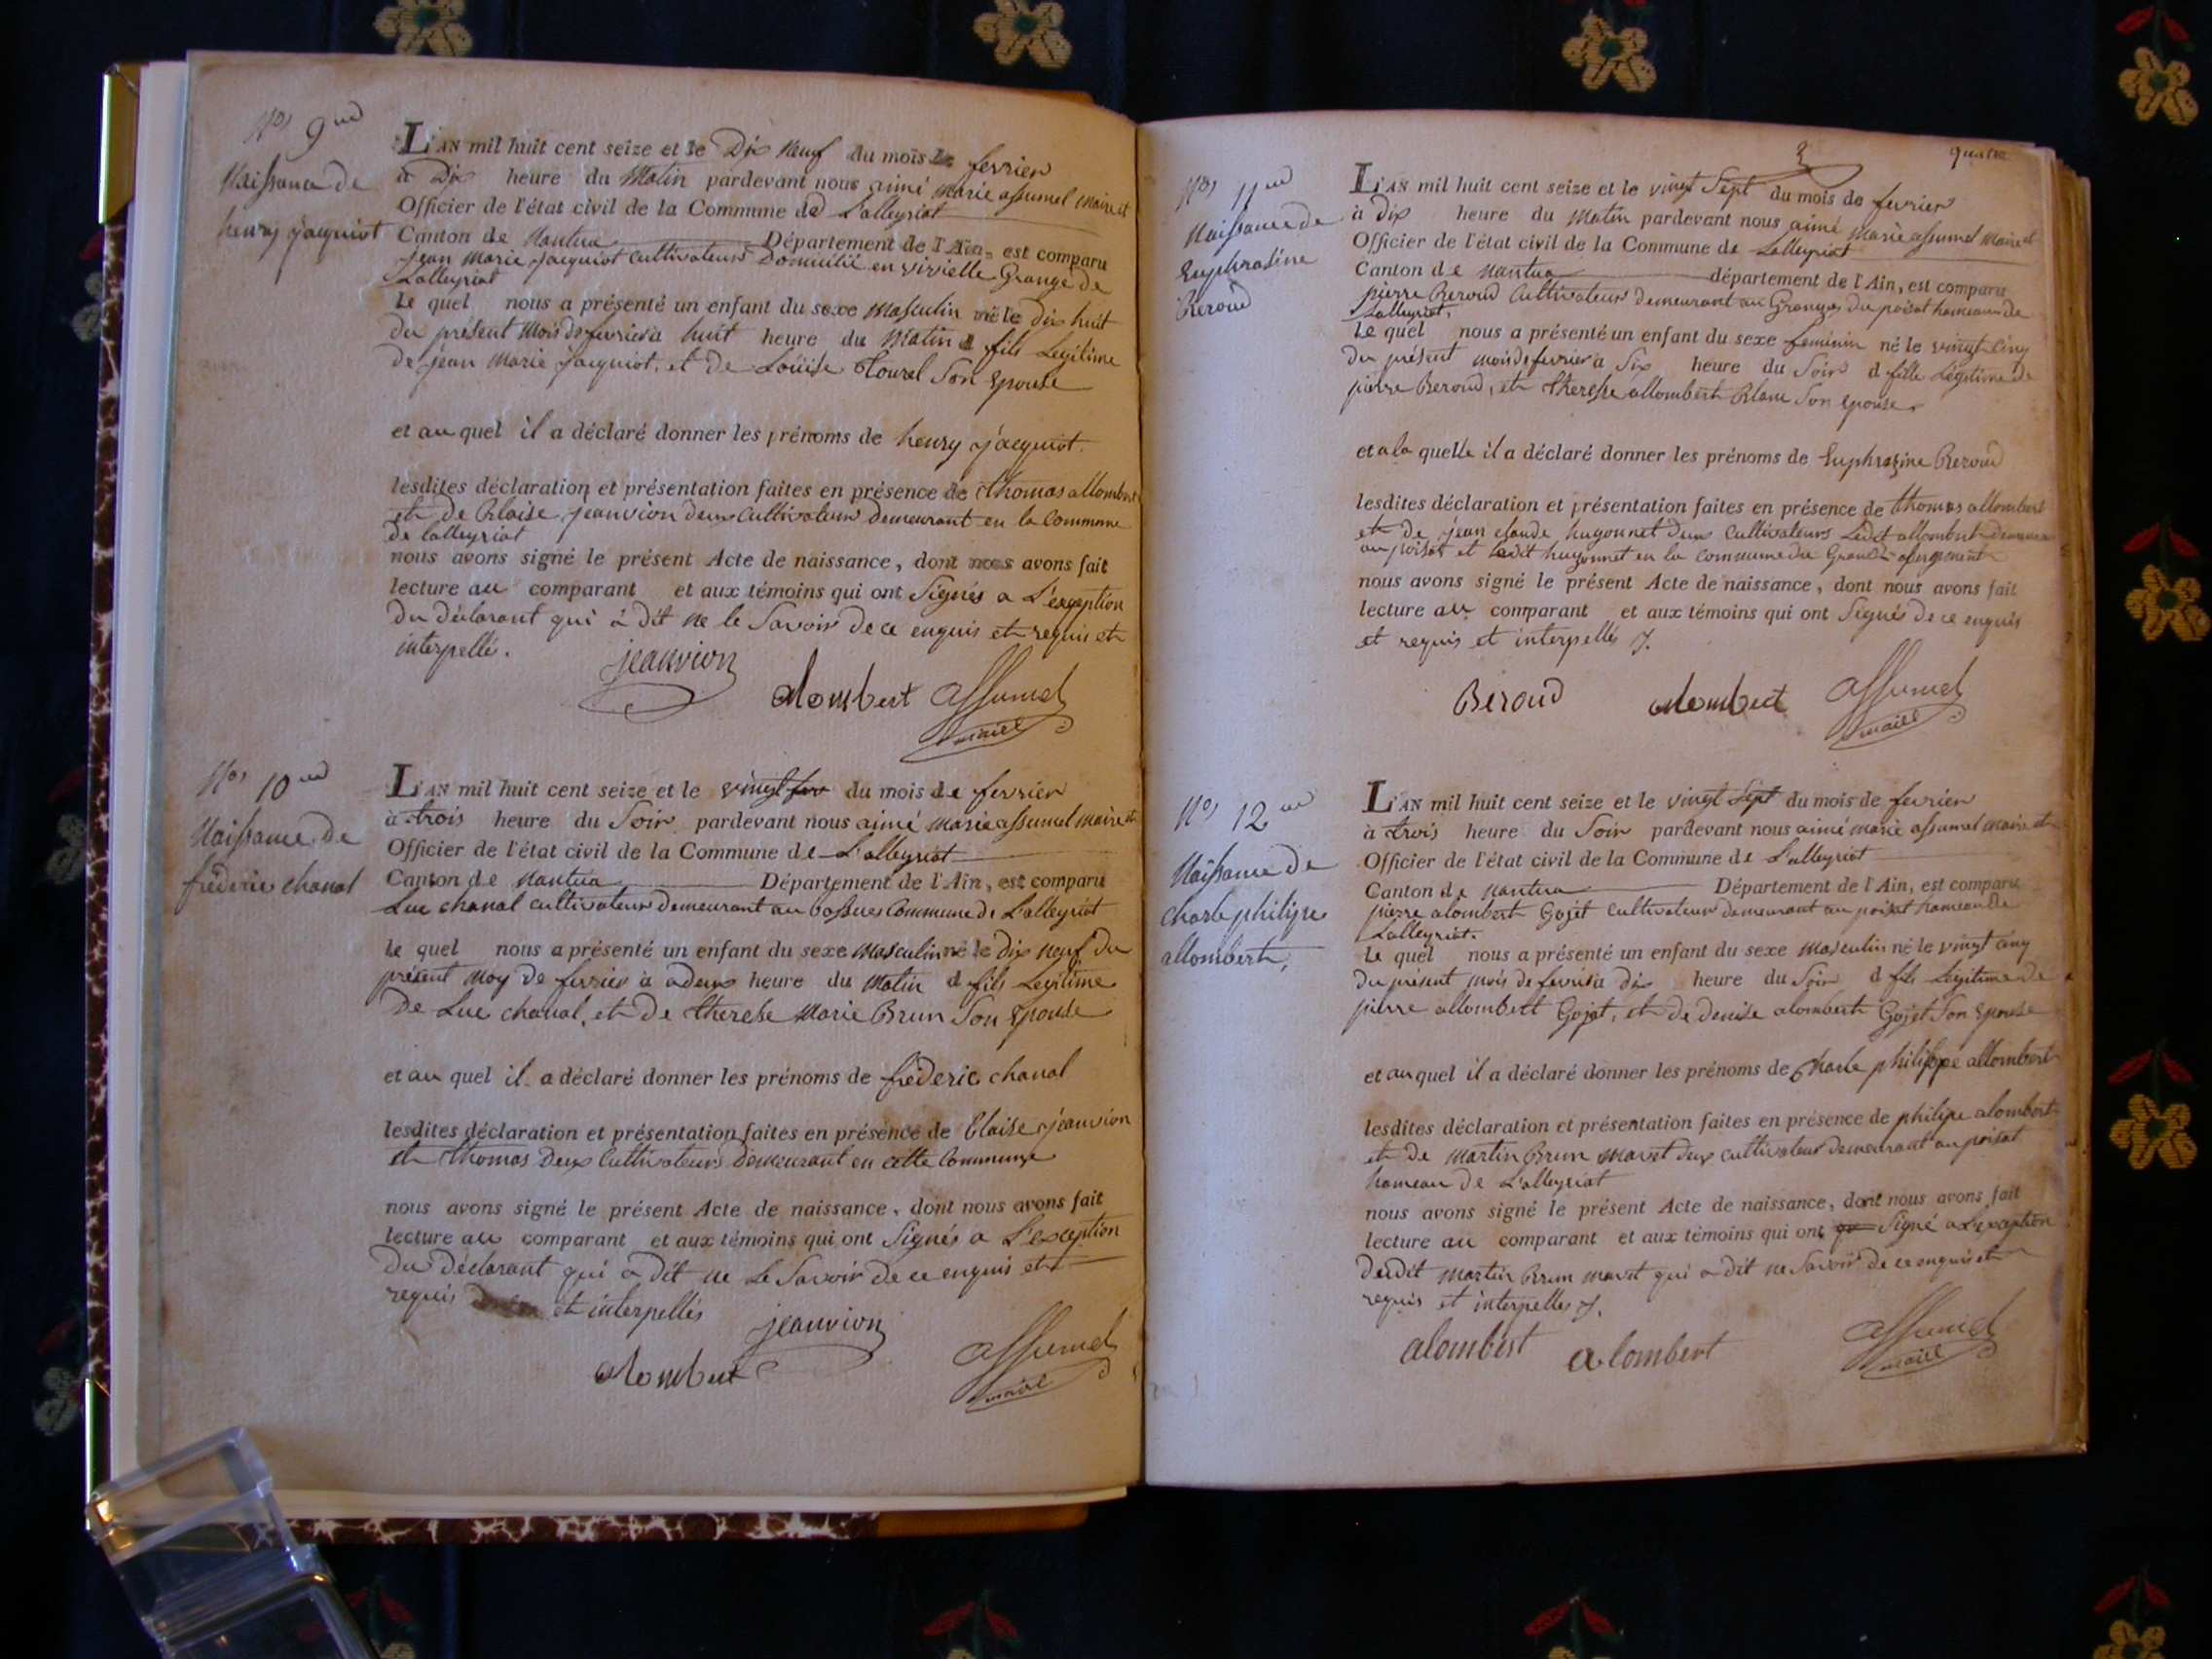 No 9
Naissance de
henry jacquiot
L'AN mil huit cent seize et le Dix Neuf du mois de fevrier
à Dix heure du Matin pardevant nous aimé marie assumel maire et
Officier de l'état civil de la Commune de L'alleyriat
Canton de Nantua Département de l'Ain, est comparu
jean marie jacquiot cultivateur Domicilié en virielle Grange de
L'alleyriat
Le quel nous a présenté un enfant du sexe Masculin né le dix huit
du présent mois de fevrier à huit heure du Matin d fils Legitime
de jean marie jacquiot, et de Loüise Son Epouse
et au quel il a déclaré donner les prénoms de henry jacquiot.
lesdites déclaration et présentation faites en présence de thomas allombert
et de Blaise jeanvion deux cultivateurs demeurant en la commune
de lalleyriat
nous avons signé le présent Acte de naissance, dont nous avons fait
lecture au comparant et aux témoins qui ont Signés a L'exception
du déclarant qui à dit ne le Savoir de ce enquis et requis et
interpellé.
jeanvion
alombert assumel
maire
No 10
Naissance de
fréderic chanal
L'AN mil huit cent seize et le vingt du mois de fevrier
à trois heure du Soir pardevant nous aimé marie assumel maire et
Officier de l'état civil de la Commune de L'alleyriat
Canton de Nantua Département de l'Ain, est comparu
Luc chanal cultivateur demeurant au Commune de L'alleyriat
le quel nous a présenté un enfant du sexe Masculin né le dix neuf du
présent moy de fevrier à deux heure du Matin d fils Legitime
De Luc chanal, et De therese Marie Brun Son Epouse
et au quel il a déclaré donner les prénoms de fréderic chanal
lesdites déclaration et présentation faites en présence de blaise jeanvion
et thomas Deux Cultivateurs demeurant en cette Commune
nous avons signé le présent Acte de naissance, dont nous avons fait
lecture au comparant et aux témoins qui ont Signés a L'exception
Du Déclarant qui a Dit ne Le Savoir De ce enquis et
requis et interpellés
jeanvion
alombert
assumel
maire
quatre
No 11
Naissance de
Euphrasine
Beroud
L'AN mil huit cent seize et le vingt Sept du mois de fevrier
à Dix heure du Matin pardevant nous aimé Marie assumel maire et
Officier de l'état civil de la Commune de Lalleyriat
Canton de Nantua département de l'Ain, est comparu
pierre Beroud Cultivateur demeurant au Granges du poisat hameau de
Lalleyriat.
Le quel nous a présenté un enfant du sexe feminin né le vingt cinq
du présent mois de fevrier à Six heure du Soir d fille Légitime de
pierre Beroud, et therese allombert Blanc Son Epouse
et a la quelle il a déclaré donner les prénoms de Euphrazine Beroud
lesdites déclaration et présentation faites en présence de thomas allombert
et de jean claude hugonnet deux cultivateurs Ledit allombert
au poisat et ledit hugonnet en la commune du Grand
nous avons signé le présent Acte de naissance, dont nous avons fait
lecture au comparant et aux témoins qui ont Signés de ce enquis
et requis et interpellés
Beroud alombert assumel
maire
No 12
Naissance de
charle philippe
allombert.
L'AN mil huit cent seize et le vingt Sept du mois de fevrier
à trois heure du Soir pardevant nous aimé marie assumel maire et
Officier de l'état civil de la Commune de L'alleyriat
Canton de Nantua Département de l'Ain, est comparu
pierre alombert Gojet cultivateur demeurant au poisat hameau de
Lalleyriat.
Le quel nous a présenté un enfant du sexe masculin né le vingt cinq
du présent mois de fevrier à dix heure du Soir d fils Légitime de
pierre allombert Gojet, et de denise alombert Gojet Son Epouse
et au quel il a déclaré donner les prénoms de Charle philippe allombert
lesdites déclaration et présentation faites en présence de philipe alombert
et de martin Brun mavet deux cultivateur demeurant au poisat
hameau de L'alleyriat
nous avons signé le présent Acte de naissance, dont nous avons fait
lecture au comparant et aux témoins qui ont Signé a L'exception
dudit martin Brun mavet qui a dit ne Savoir de ce enquis et
requis et interpelles
alombert alombert
assumel
maire